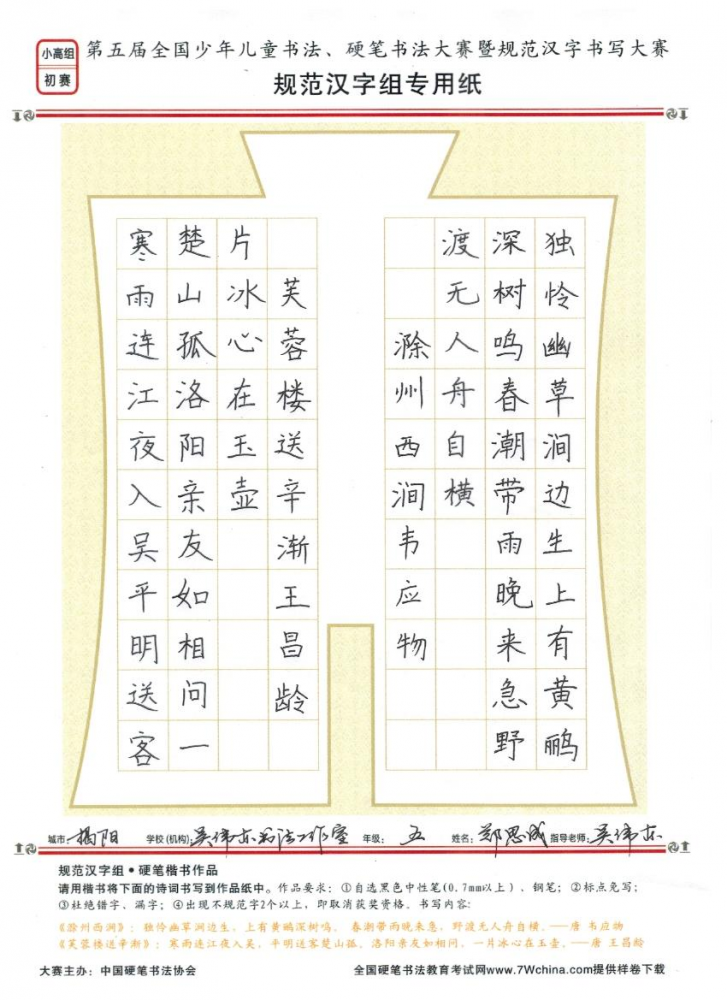 小高组
初赛
第五届全国少年儿童书法、硬笔书法大赛暨规范汉字书写大赛
规范汉字组专用纸
独怜幽草涧边生上有黄鹂
深树鸣春潮带雨晚来急野
渡无人舟自横
滁州西涧韦应物
寒雨连江夜入吴平明送客
楚山孤洛阳亲友如相问一
片冰心在玉壶
芙蓉楼送辛渐王昌龄
城市:揭阳 学校(机构):吴伟东书法工作室 年级:五 姓名:郑思成 指导老师:吴伟东
规范汉字组•硬笔楷书作品
请用楷书将下面的诗词书写到作品纸中。作品要求：①自选黑色中性笔(0.7mm以上)、钢笔；②标点免写；
③杜绝错字、漏字；④出现不规范字2个以上，即取消获奖资格。书写内容：
《滁州西涧》：独怜幽草涧边生，上有黄鹂深树鸣。 春潮带雨晚来急，野渡无人舟自横。——唐 韦应物
《芙蓉楼送辛渐》：寒雨连江夜入吴，平明送客楚山孤。洛阳亲友如相问，一片冰心在玉壶。——唐 王昌龄
大赛主办：中国硬笔书法协会 全国硬笔书法教育考试网www.7Wchina.com提供样卷下载